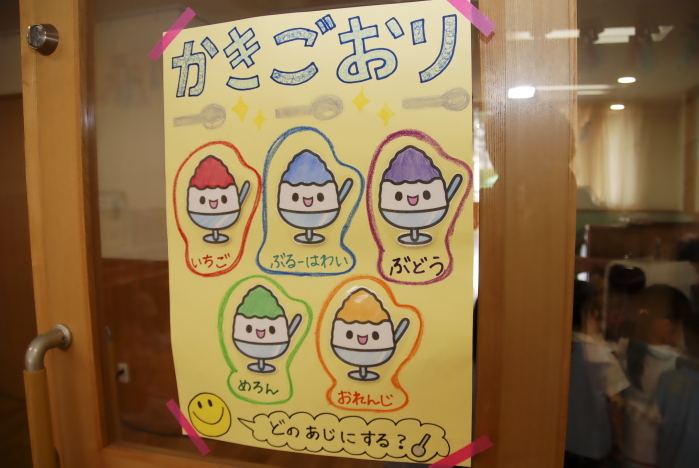 かきごおり
いちご
ぶるーはわい
ぶどう
めろん
おれんじ
どのあじにする?